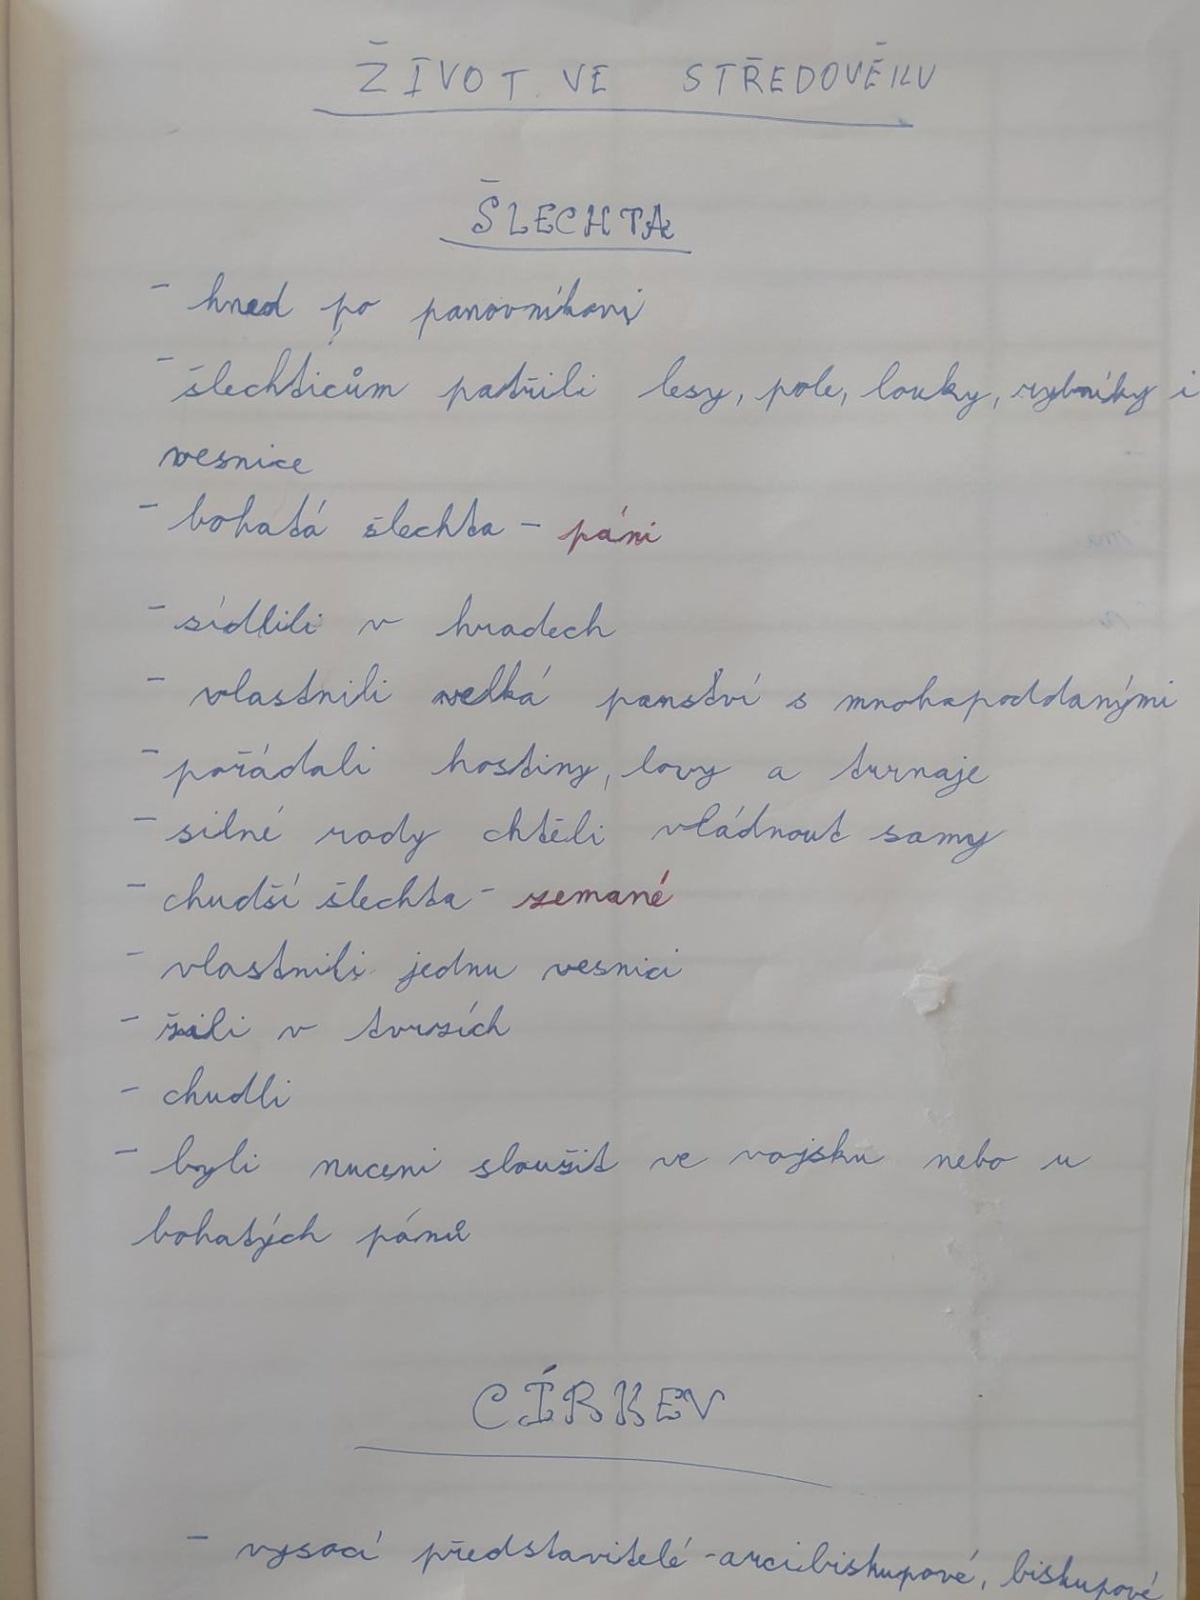 ŽIVOT VE STŘEDOVĚKU
ŠLECHTA
- hned po panovníkovi
- šlechticům patřili lesy, pole, louky, rybníky i
vesnice
- bohatá šlechta - páni
- sídlili v hradech
- vlastnili velká panství s mnohapoddanými
- pořádali hostiny, lovy a turnaje
- silné rody chtěli vládnout samy
- chudší šlechta - zemané
- vlastnili jednu vesnici
- žili v tvrzích
- chudli
- byli nuceni sloužit ve vojsku nebo u
bohatých pánů
CÍRKEV
- vysocí představitelé - arcibiskupové, biskupové